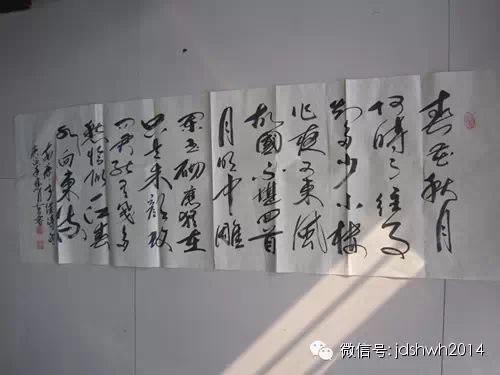 春花秋月
何時了往事
知多少小樓
昨夜又東風
故國不堪回首
月明中雕
闌玉砌應猶在
只是朱顏改
問君能有幾多
愁恰似一江春
水向東流
微信号: jdshwh2014